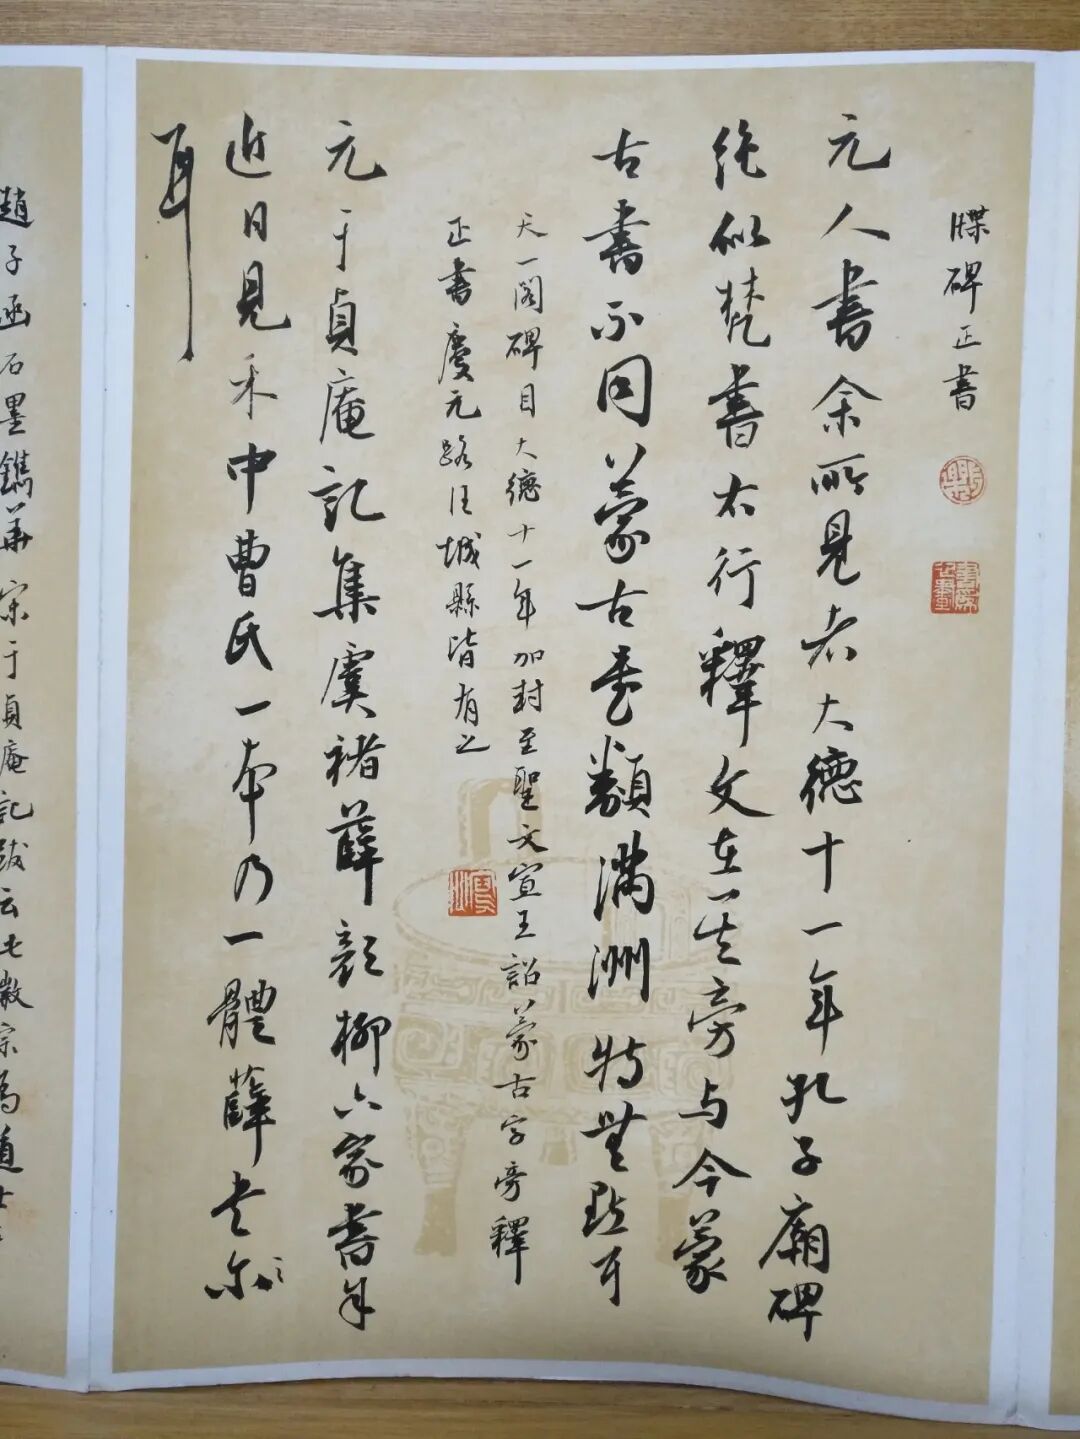 牒碑正書
元人書余所見者大德十一年孔子廟碑
絕似梵書右行釋文在其旁与今蒙
古書不同蒙古書類滿洲特無點耳
天一閣碑目大德十一年加封至聖文宣王詔蒙古字旁釋
正書慶元路 城縣皆有之
元于貞庵記集虞褚薛顏柳六家書
近日見禾中曹氏一本乃一體薛書尔
耳
趙子函石墨鐫華宋于貞庵記跋云七 宗為道士